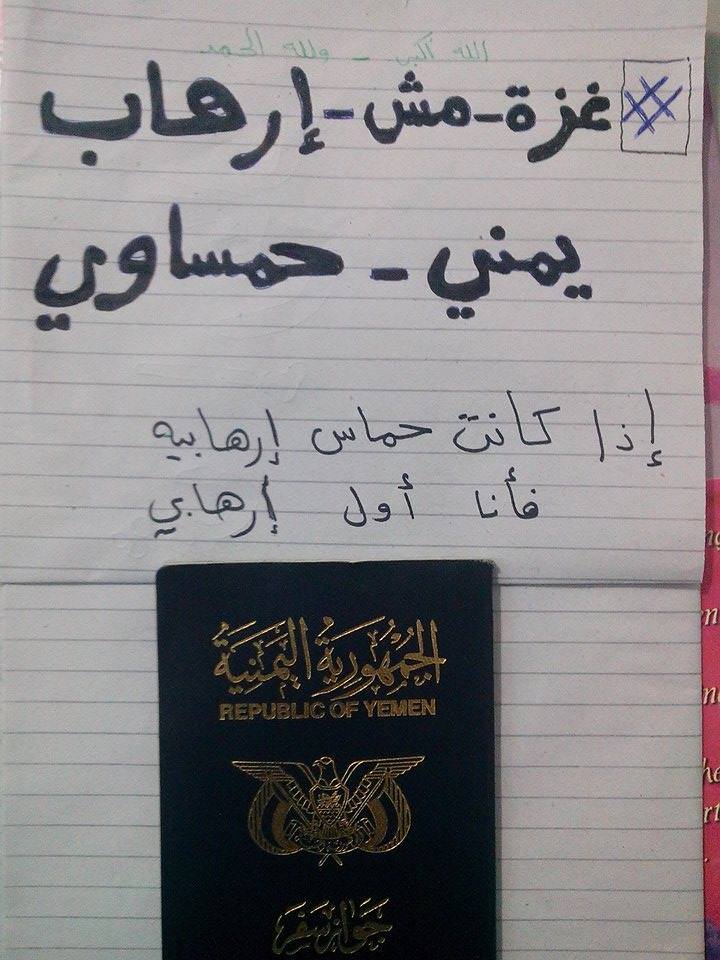 الله أكبر - ولله الحمد
# غزة-مش-إرهاب
يمني - حمساوي
إذا كانت حماس إرهابيه
فأنا أول إرهابي
الجمهورية اليمنية
REPUBLIC OF YEMEN
جواز سفر